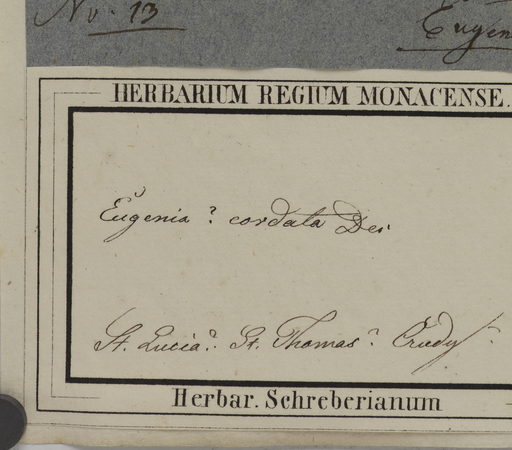 No. 13
Eugen
HERBARIUM REGIUM MONACENSE.
Eugenia? cordata Des
St. Lucia? St. Thomas? Crudy.
Herbar. Schreberianum